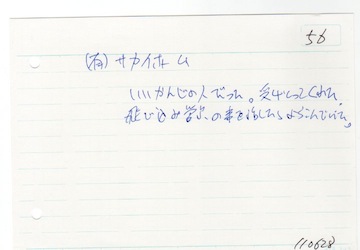 56
(有) サカイホーム
いいかんじの人だった。受けとってくれた。
飛び込み営業の事を話したらよろこんでいた。
110628